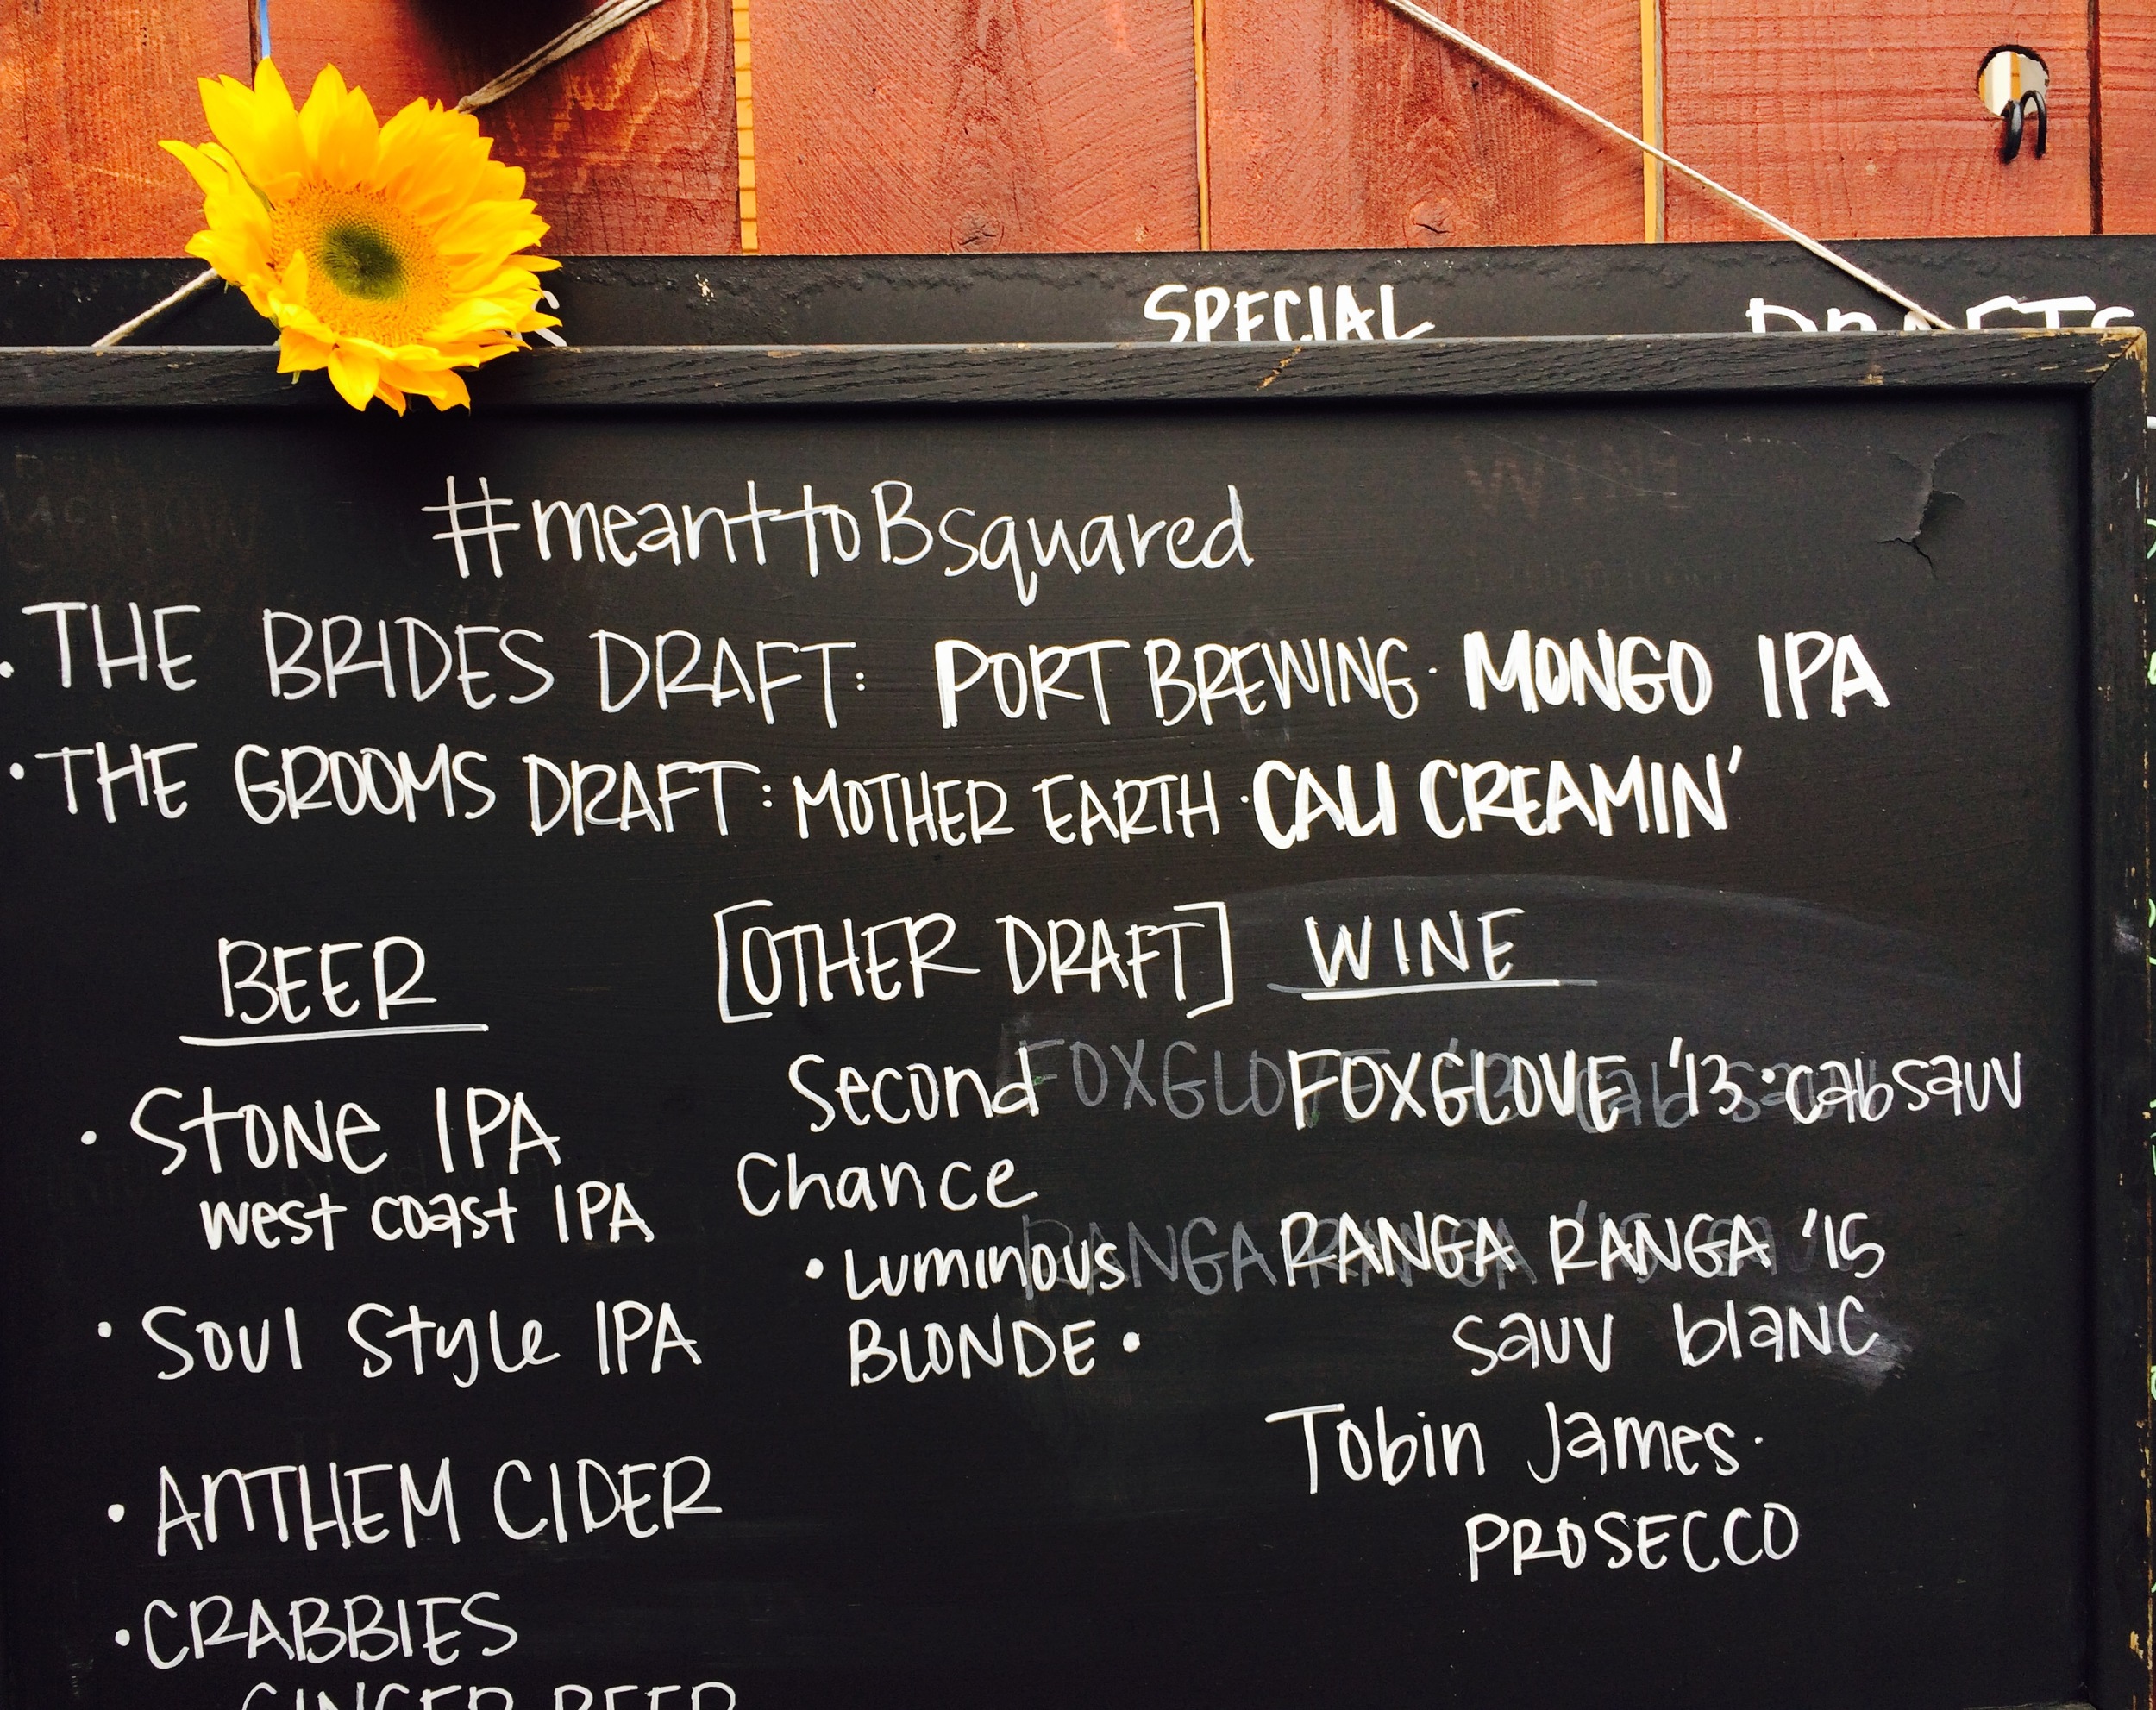 SPECIAL
DRAFTS
#meanttoBsquared
• THE BRIDES DRAFT: PORT BREWING · MONGO IPA
• THE GROOMS DRAFT: MOTHER EARTH · CALI CREAMIN'
BEER
• STONE IPA
west coast IPA
• Soul Style IPA
• ANTHEM CIDER
• CRABBIES
GINGER BEER
[OTHER DRAFT]
Second
Chance
• Luminous
BLONDE •
WINE
FOXGLOVE '13 · cab sauv
RANGA RANGA '15
sauv blanc
Tobin James ·
PROSECCO